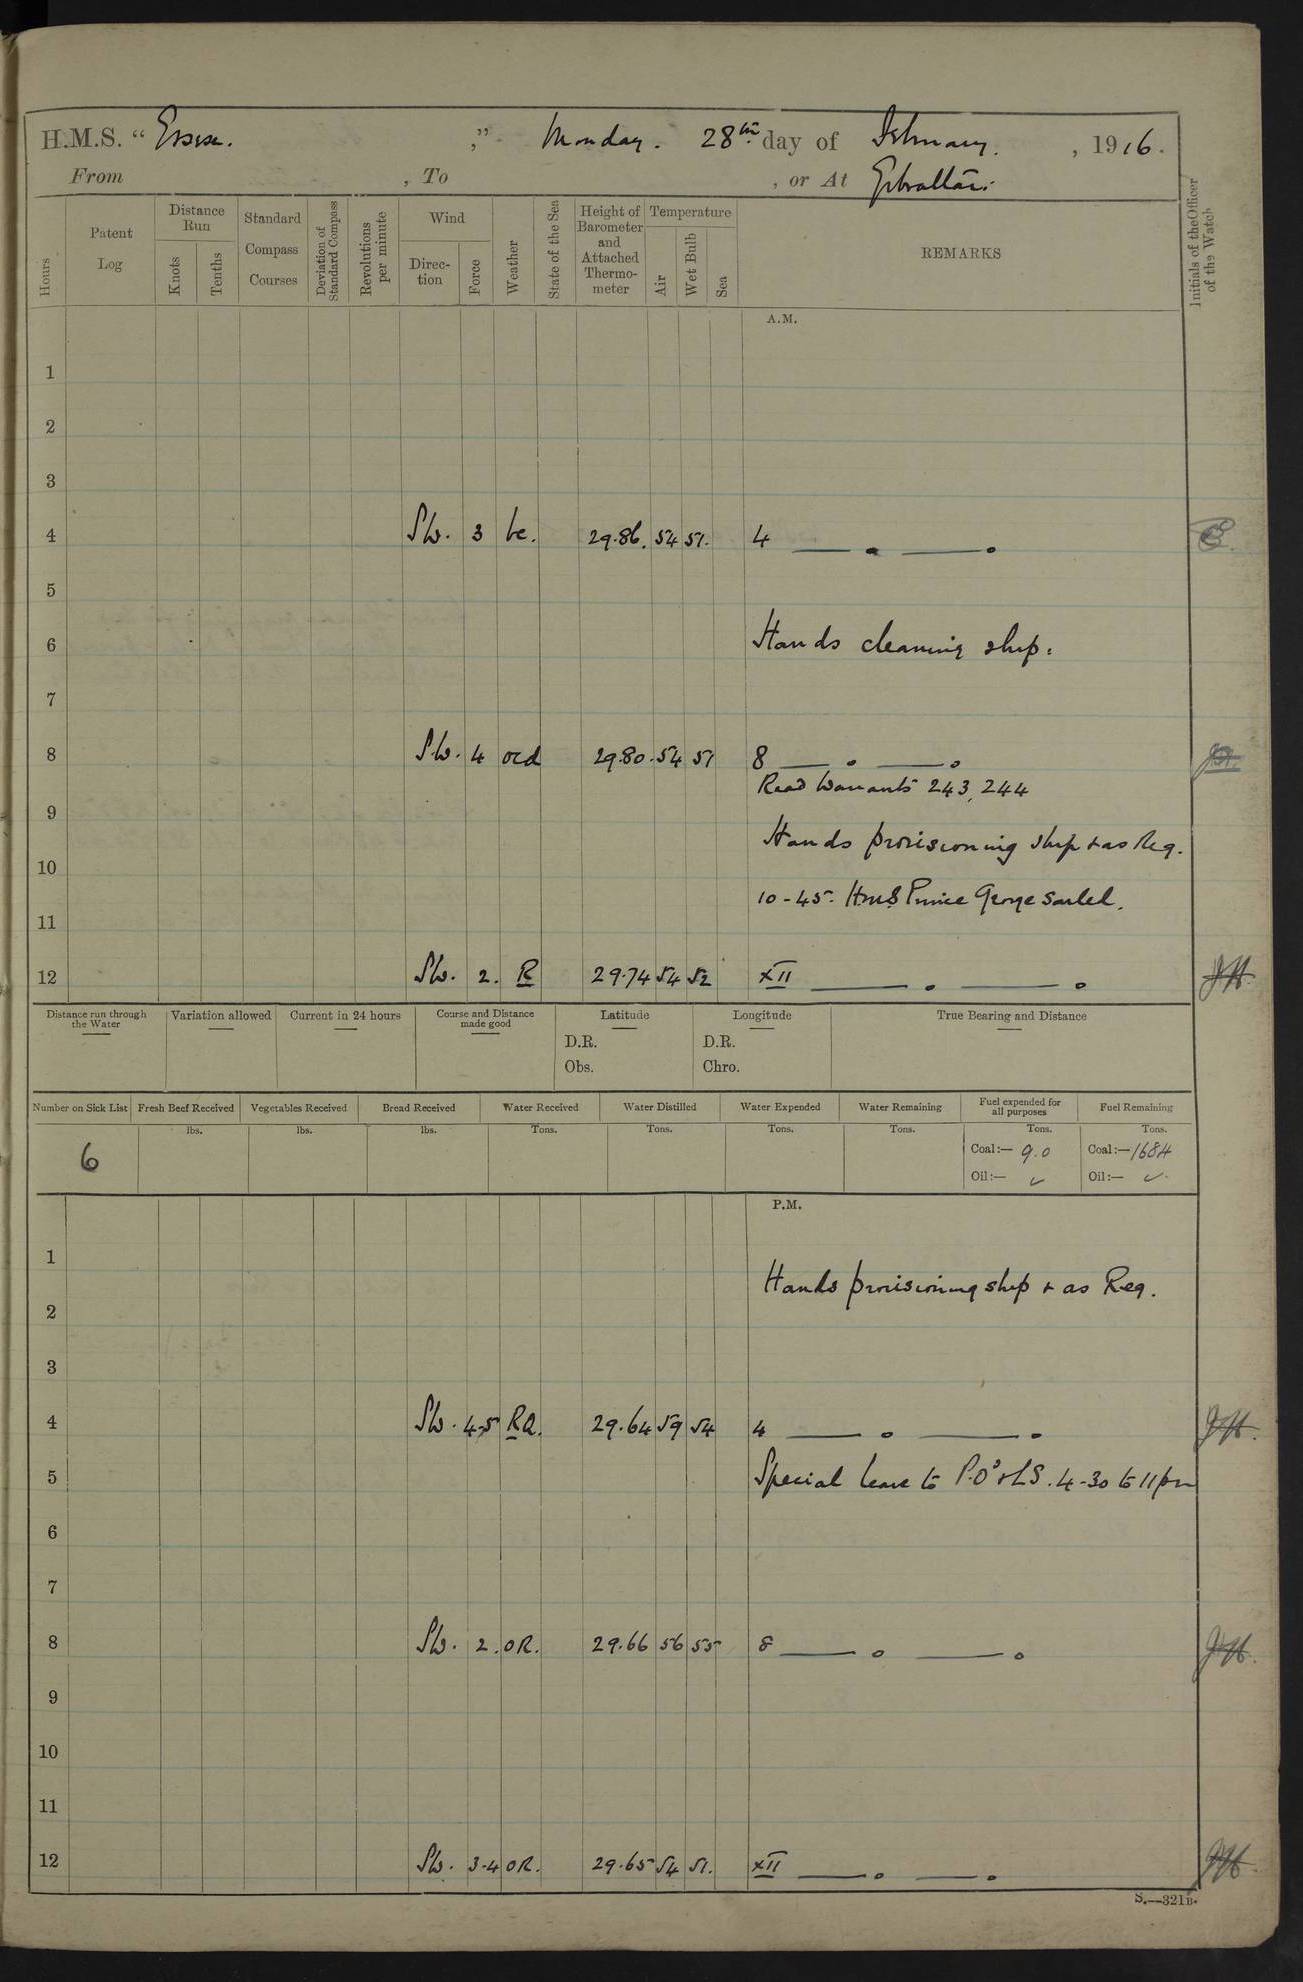 H.M.S. " Essex. ," Monday. 28th day of February. , 1916.
From , To , or At Gibraltar.
Hours
Patent Log
Distance Run
Knots
Tenths
Standard Compass Courses
Deviation of Standard Compass
Revolutions per minute
Wind
Direc- tion
Force
Weather
State of the Sea
Height of Barometer and Attached Thermo- meter
Temperature
Air
Wet Bulb
Sea
REMARKS
Initials of the Officer of the Watch
A.M.
1
2
3
4 SW. 3 bc. 29.86. 54 51. 4 — . — .
5
6 Hands cleaning ship.
7
8 S.W. 4 ocd 29.80. 54 51 8 — . — .
Read Warrants 243, 244
9
Hands provisioning ship & as Req.
10
10-45. H.M.S. Prince George sailed.
11
12 SW. 2. R 29.74 54 52 XII — . — . JH.
Distance run through the Water
Variation allowed
Current in 24 hours
Course and Distance made good
Latitude
D.R.
Obs.
Longitude
D.R.
Chro.
True Bearing and Distance
Number on Sick List Fresh Beef Received Vegetables Received Bread Received Water Received Water Distilled Water Expended Water Remaining Fuel expended for all purposes Fuel Remaining
lbs. lbs. lbs. Tons. Tons. Tons. Tons. Tons. Tons.
6 Coal:— 9.0 Coal:— 1684
Oil:— ✓ Oil:— ✓
P.M.
1
Hands provisioning ship & as Req.
2
3
4 SW. 4-5 RQ. 29.64 59 54 4 — . — . JH.
5 Special leave to P.O's & LS. 4-30 to 11 pm
6
7
8 SW. 2. OR. 29.66 56 55 8 — . — . JH.
9
10
11
12 SW. 3-4 OR. 29.65 54 51. XII — . — . JH.
S.—321B.